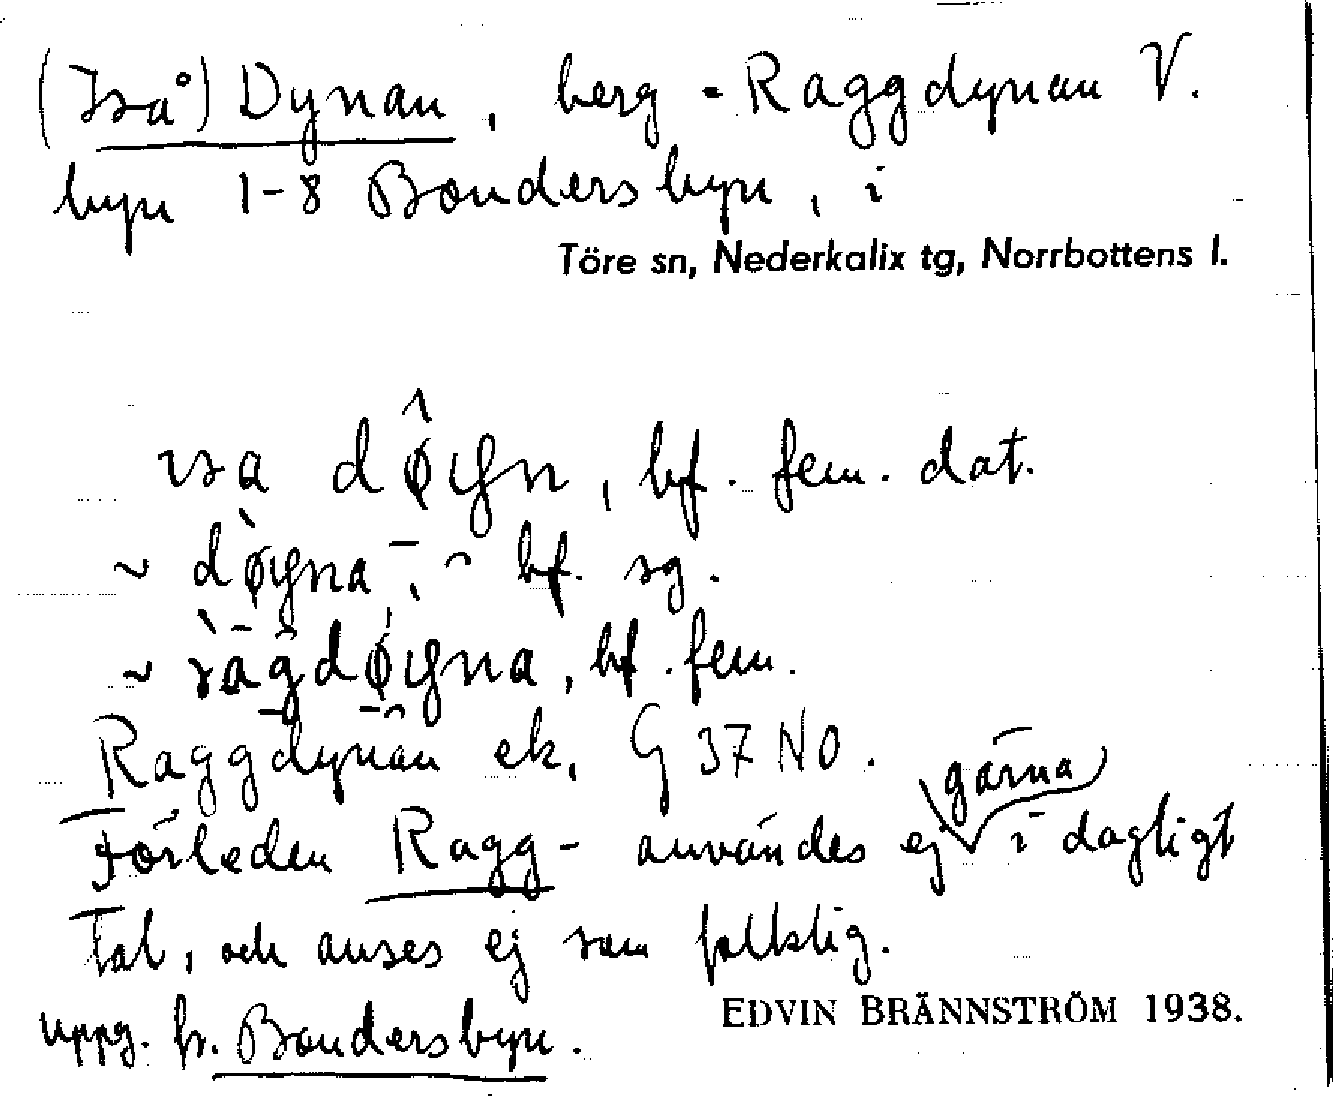 (Iså) Dynan, berg = Raggdynan V.
byn 1-8 Bondersbyn, i
Töre sn, Nederkalix tg, Norrbottens l.
bf. fem. dat.
~ bf. sg.
~ bf. fem.
Raggdynan ek. G 37 NO.
gärna
Förleden Ragg- användes ej i dagligt
tal, och anses ej som folklig.
EDVIN BRÄNNSTRÖM 1938.
uppg. fr. Bondersbyn.